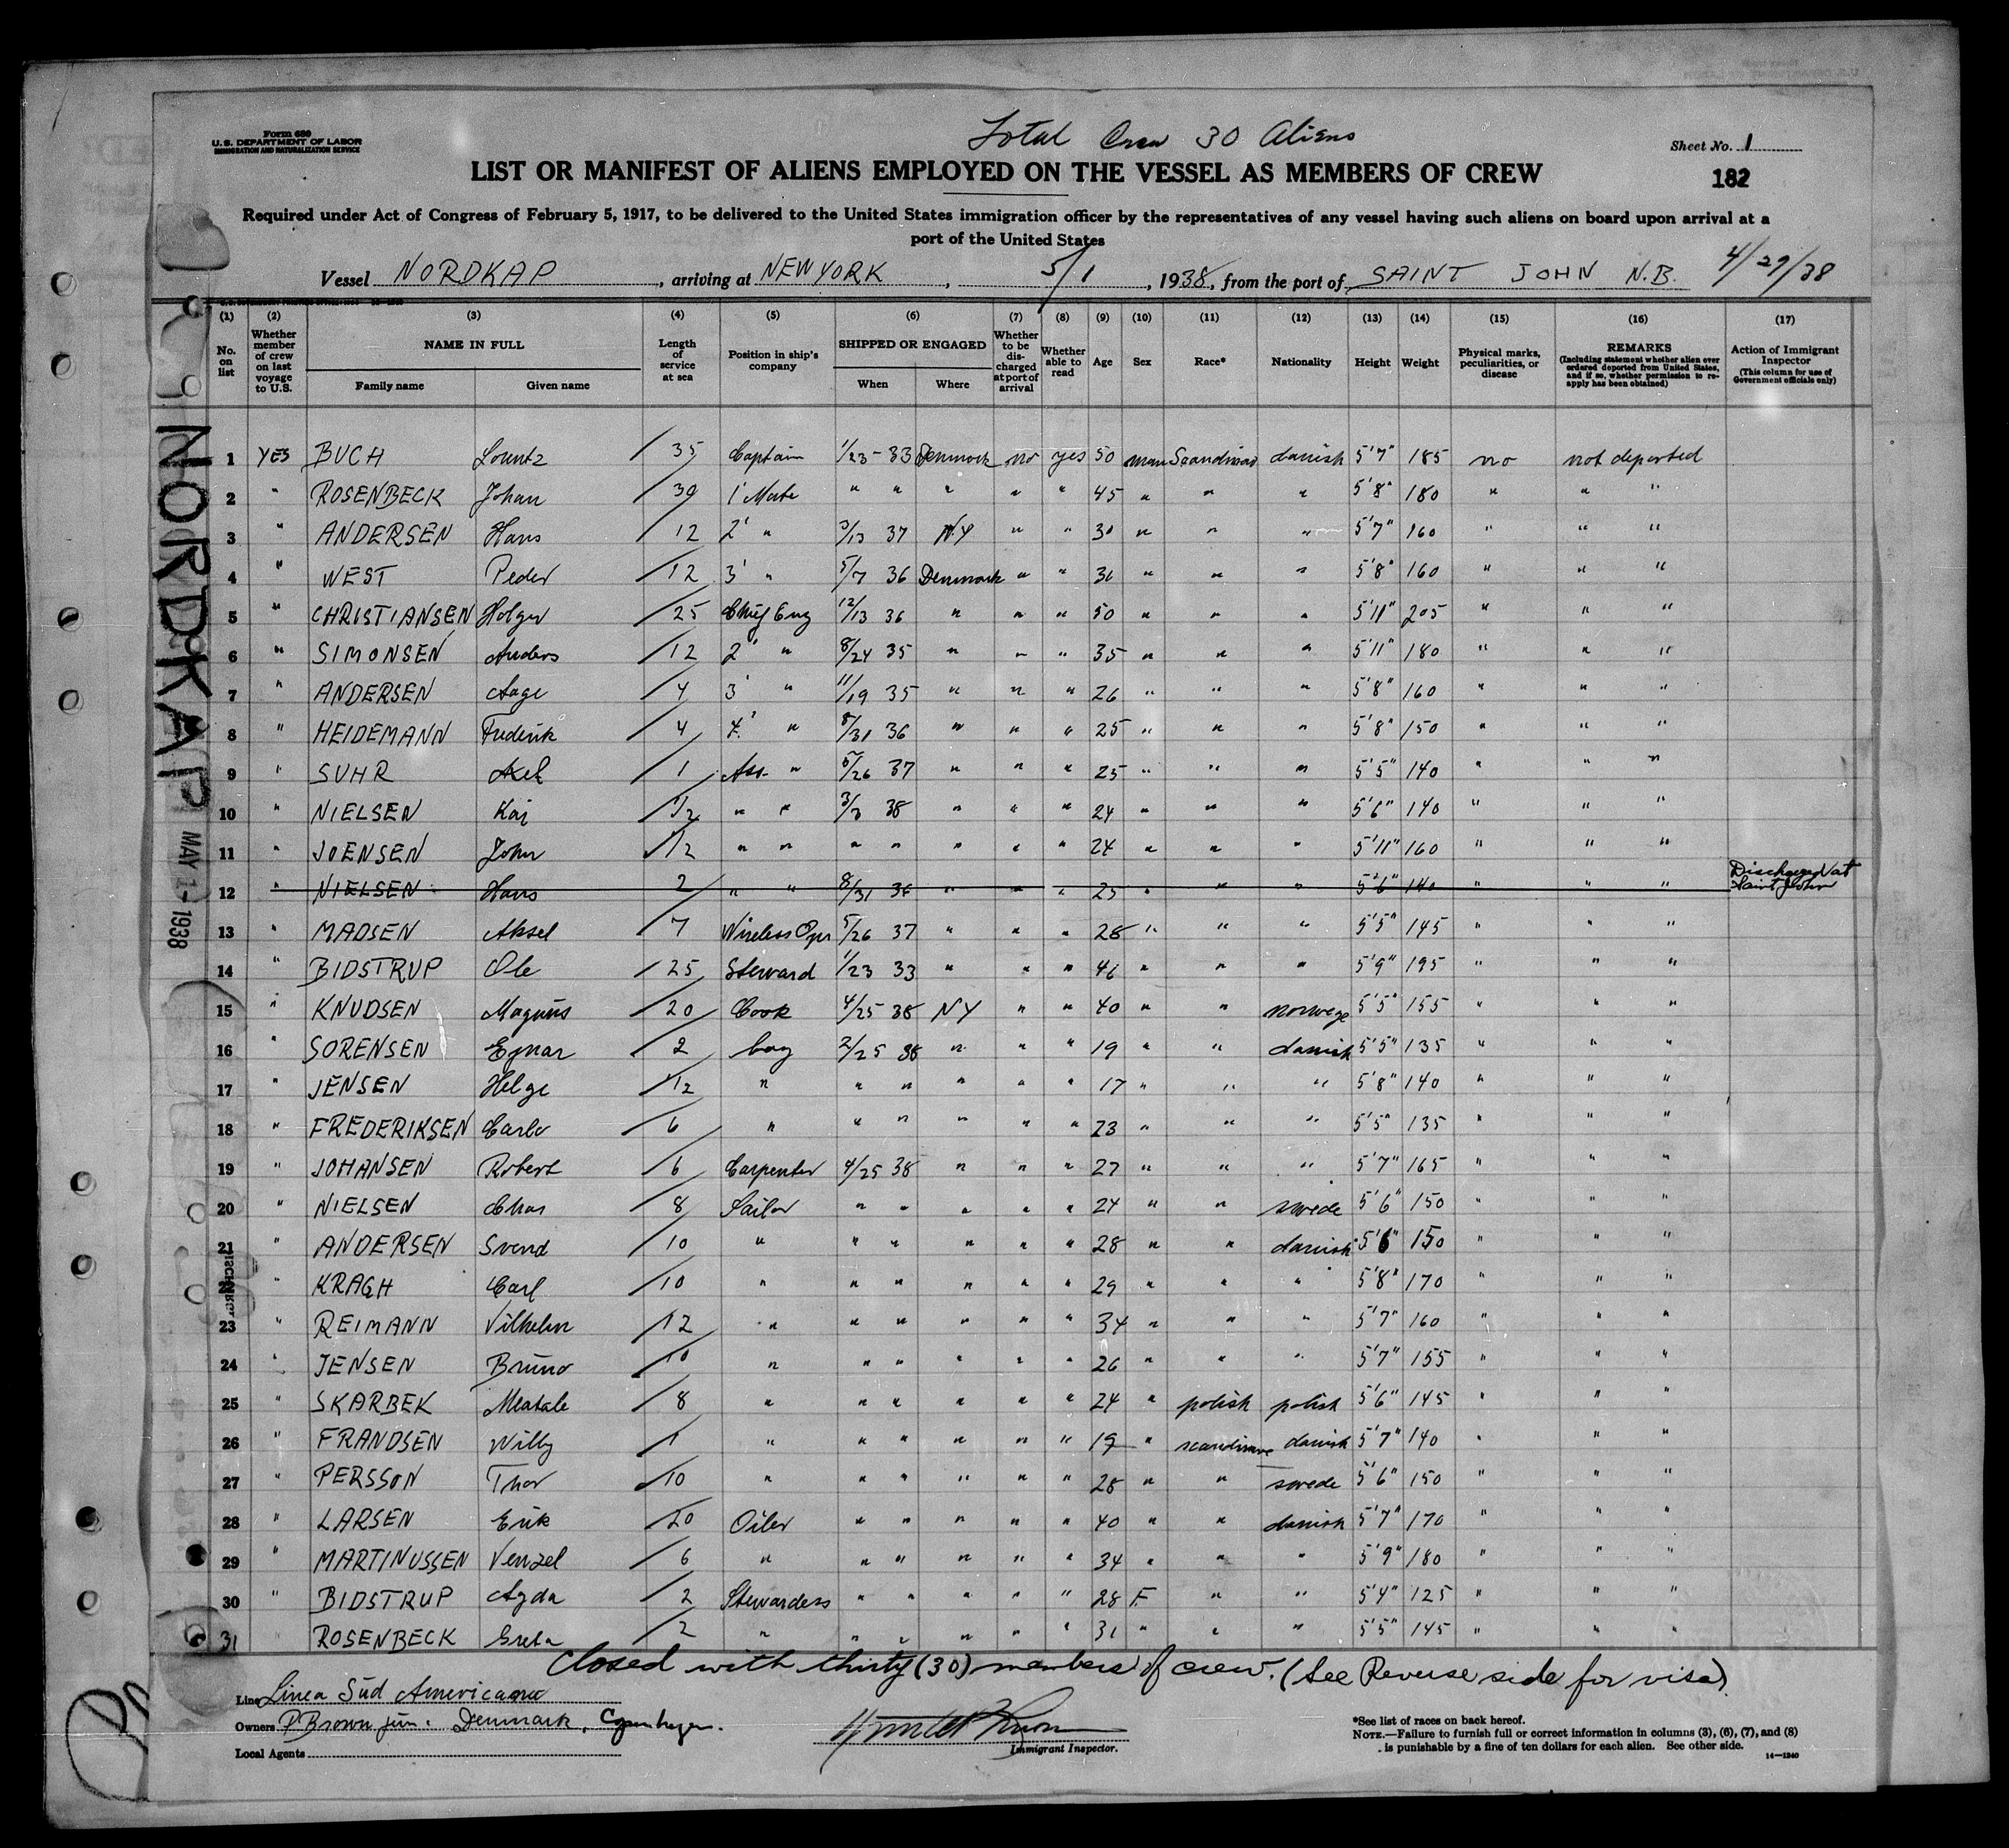 Total Crew 30 Aliens
Form 680
U.S. DEPARTMENT OF LABOR
IMMIGRATION AND NATURALIZATION SERVICE
Sheet No. 1
LIST OR MANIFEST OF ALIENS EMPLOYED ON THE VESSEL AS MEMBERS OF CREW
182
Required under Act of Congress of February 5, 1917, to be delivered to the United States immigration officer by the representatives of any vessel having such aliens on board upon arrival at a
port of the United States
Vessel NORDKAP, arriving at NEW YORK, 5/1, 1938, from the port of SAINT JOHN N.B. 4/29/38
(1) (2) (3) (4) (5) (6) (7) (8) (9) (10) (11) (12) (13) (14) (15) (16) (17)
No. on list
Whether member of crew on last voyage to U.S.
NAME IN FULL
Family name Given name
Length of service at sea
Position in ship's company
SHIPPED OR ENGAGED
When Where
Whether to be discharged at port of arrival
Whether able to read
Age
Sex
Race*
Nationality
Height
Weight
Physical marks, peculiarities, or disease
REMARKS
(Including statement whether alien ever ordered deported from United States, and if so, whether permission to reapply has been obtained)
Action of Immigrant Inspector
(This column for use of Government officials only)
1 YES BUCH Lorentz 35 Captain 1/23 - 33 Denmark no yes 50 man Scandinav danish 5'7" 185 no not deported
2 " ROSENBECK Johan 30 1' Mate " " " " " 45 " " " 5'8" 180 " " "
3 " ANDERSEN Hans 12 2' " 3/13 37 N.Y " " 30 " " " 5'7" 160 " " "
4 " WEST Peder 12 3' " 5/7 36 Denmark " " 36 " " " 5'8" 160 " " "
5 " CHRISTIANSEN Holger 25 Chief Eng 12/13 36 " " " 50 " " " 5'11" 205 " " "
6 " SIMONSEN Anders 12 2' " 8/24 35 " " " 35 " " " 5'11" 180 " " "
7 " ANDERSEN Aage 4 3' " 11/19 35 " " " 26 " " " 5'8" 160 " " "
8 " HEIDEMANN Frederik 4 4' " 8/31 36 " " " 25 " " " 5'8" 150 " " "
9 " SUHR Axel 1 Ass. " 5/26 37 " " " 25 " " " 5'5" 140 " " "
10 " NIELSEN Kaj 1/2 " " 3/3 38 " " " 24 " " " 5'6" 140 " " "
11 " JOENSEN John 1/2 " " " " " " " 24 " " " 5'11" 160 " " "
12 " NIELSEN Hans 2 " " 8/31 36 " " " 25 " " " 5'6" 140 " " " Discharged at Saint John
13 " MADSEN Aksel 7 Wireless Opr 5/26 37 " " " 28 " " " 5'5" 145 " " "
14 " BIDSTRUP Ole 25 Steward 1/23 33 " " " 46 " " " 5'9" 195 " " "
15 " KNUDSEN Magnus 20 Cook 4/25 38 NY " " 40 " " norwege 5'5" 155 " " "
16 " SORENSEN Ejnar 2 boy 2/25 38 " " " 19 " " danish 5'5" 135 " " "
17 " JENSEN Helge 1/2 " " " " " " 17 " " " 5'8" 140 " " "
18 " FREDERIKSEN Carlo 6 " " " " " " 23 " " " 5'5" 135 " " "
19 " JOHANSEN Robert 6 Carpenter 4/25 38 " " " 27 " " " 5'7" 165 " " "
20 " NIELSEN Chas 8 Sailor " " " " " 24 " " swede 5'6" 150 " " "
21 " ANDERSEN Svend 10 " " " " " " 28 " " danish 5'6" 150 " " "
22 " KRAGH Carl 10 " " " " " " 29 " " " 5'8" 170 " " "
23 " REIMANN Vilhelm 12 " " " " " " 34 " " " 5'7" 160 " " "
24 " JENSEN Bruno 10 " " " " " " 26 " " " 5'7" 155 " " "
25 " SKARBEK 8 " " " " " " 24 " polish polish 5'6" 145 " " "
26 " FRANDSEN Willy 1 " " " " " " 19 " scandinav danish 5'7" 140 " " "
27 " PERSSON Thor 10 " " " " " " 28 " " swede 5'6" 150 " " "
28 " LARSEN Erik 20 Oiler " " " " " 40 " " danish 5'7" 170 " " "
29 " MARTINUSSEN Venzel 6 " " " " " " 34 " " " 5'9" 180 " " "
30 " BIDSTRUP Agda 2 Stewardess " " " " " 28 F. " " 5'4" 125 " " "
31 " ROSENBECK Greta 2 " " " " " " 31 " " " 5'5" 145 " " "
closed with thirty (30) members of crew. (See Reverse side for visa).
Line Linea Sud Americana
Owners P Brown jun. Denmark, Copenhagen.
Local Agents
Immigrant Inspector.
*See list of races on back hereof.
NOTE.—Failure to furnish full or correct information in columns (3), (6), (7), and (8)
is punishable by a fine of ten dollars for each alien. See other side.
14—1240
NORDKAP
MAY 1 - 1938